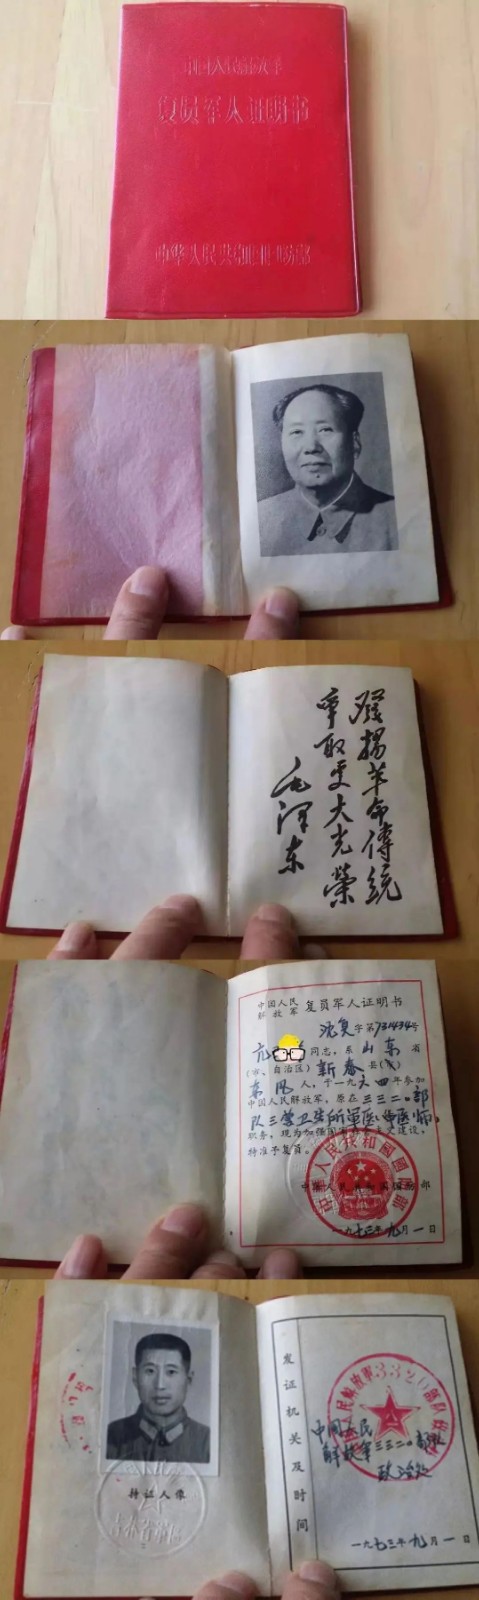 中国人民解放军
复员军人证明书
中华人民共和国国防部
發揚革命傳統
爭取更大光榮
毛泽东
中国人民
解放军
复员军人证明书
沈复字第731434号
亢
同志，系山东省
(市、自治区)新泰县(市)
东风人，于一九六四年参加
中国人民解放军，原在三三二〇部
队三营卫生所军医
职务，现为加强国家社会主义建设，
特准予复员。
中华人民共和国国防部
一九七三年九月一日
持证人像
发证机关及时间
中国人民
解放军三三二〇部队
政治处
一九七三年九月一日